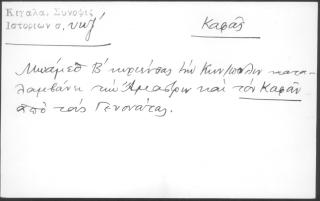 Κιγάλα, Σύνοψις
Ἱστοριῶν σ. υκζ΄
Καφᾶς
Μωάμεθ Β΄ κυριεύσας τὴν Κων/πολιν κατα-
λαμβάνει τὴν Ἄμαστριν καὶ τὸν Καφᾶν
ἀπὸ τοὺς Γενοάτας.